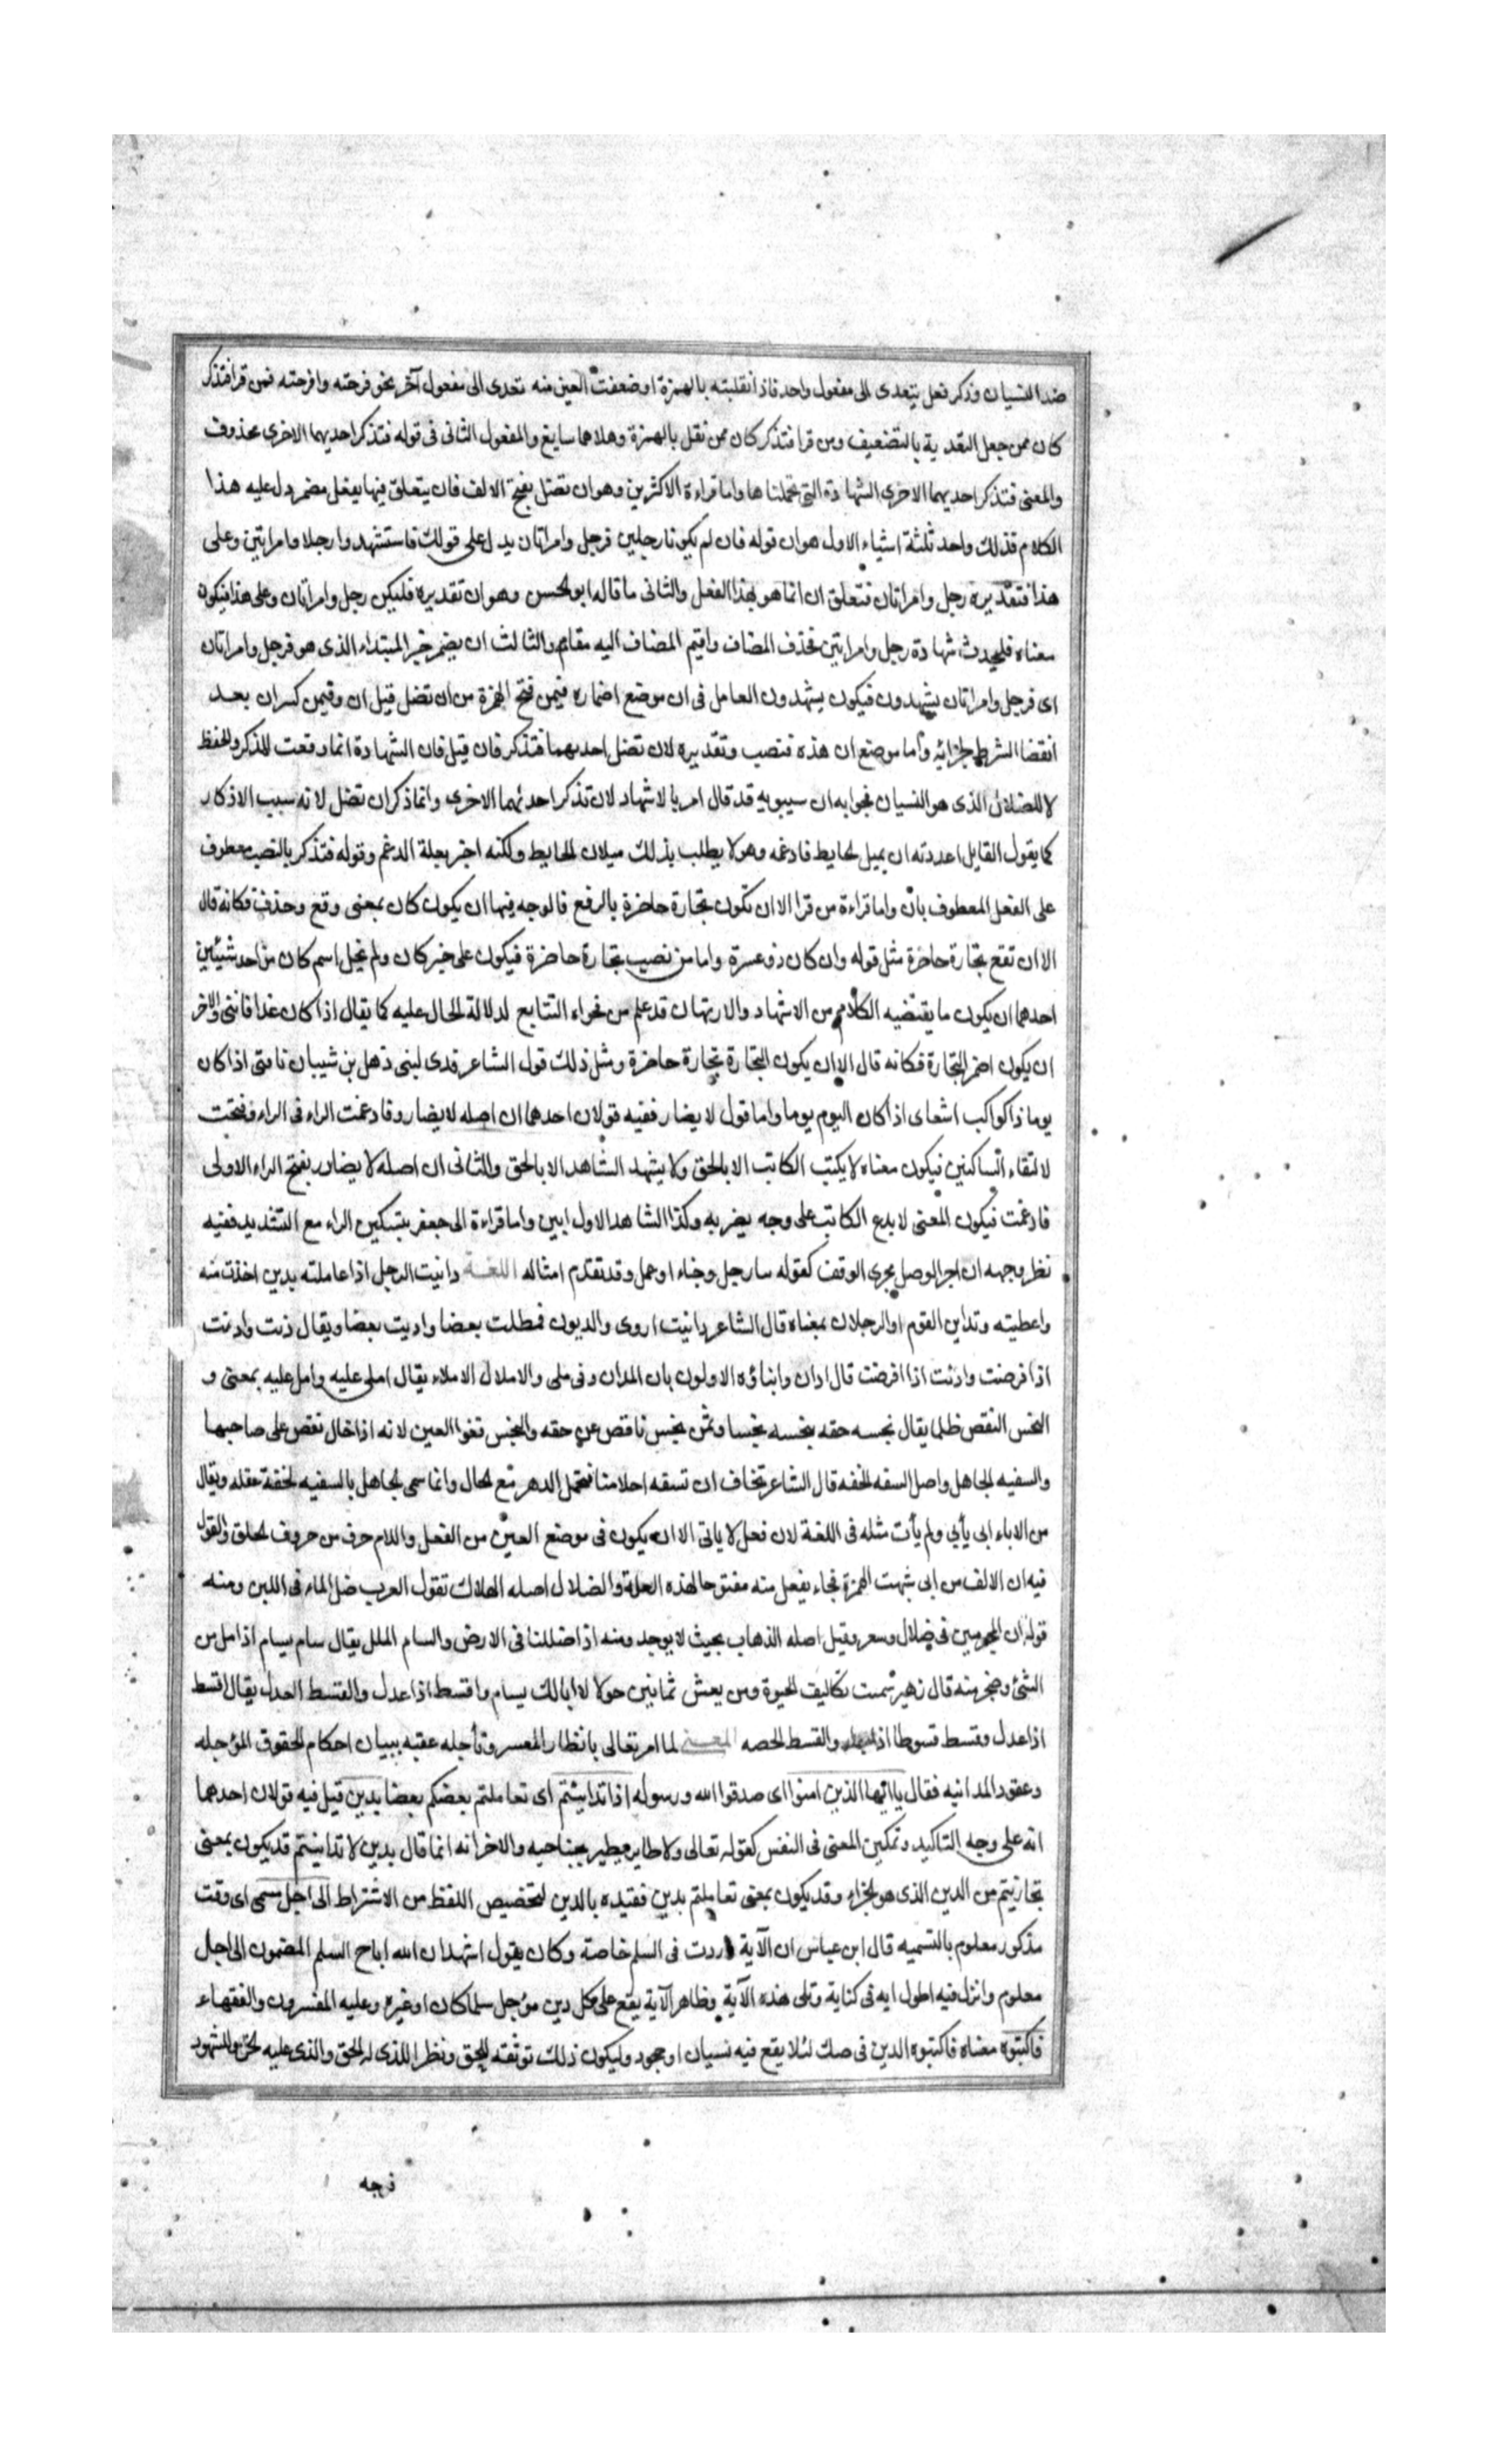 ضد النسيان وذكر فعل يتعدى الى مفعول واحد فاذا نقلته بالهمزة او ضعفت العين منه تعدى الى مفعول آخر نحو فرحته وافرحته فمن قرا فتذكر
كان ممن جعل التعدية بالتضعيف ومن قرا فتذكر كان ممن نقل بالهمزة وهلاهما سايغ والمفعول الثانى فى قوله فتذكر احديهما الاخرى محذوف
والمعنى فتذكر احديهما الاخرى الشهادة التى تحملتاها واما قراءة الاكثرين وهو ان تضل بفتح الالف فان يتعلق فيها بفعل مضمر دل عليه هذا
الكلام فذلك واحد ثلثة اشياء الاول هو ان قوله فان لم يكونا رجلين فرجل وامراتان يدل على قولك فاستشهدوا رجلا وامراتين وعلى
هذا فتقديره رجل وامراتان فتعلق ان انما هو بهذا الفعل والثانى ما قاله ابو الحسن وهو ان تقديره فليكن رجل وامراتان وعلى هذا فيكون
معناه فليحدث شهادة رجل وامراتين فحذف المضاف واقيم المضاف اليه مقامه والثالث ان يضمر خبر المبتداء الذى هو فرجل وامراتان
اى فرجل وامراتان يشهدون فيكون يشهدون العامل فى ان موضع اضماره فيمن فتح الهمزة من ان تضل قبل ان وفيمن كسر ان بعد
انقضا الشرط بجزائه وأما موضع ان هذه فنصب وتقديره لان تضل احديهما فتذكر فان قيل فان الشهادة انما وقعت للذكر والحفظ
لا للضلال الذى هو النسيان فجوابه ان سيبويه قد قال امر بالاشهاد لان تذكر احدئهما الاخرى وانما ذكر ان تضل لانه سبب الاذكار
كما يقول القايل اعددته ان يميل الحايط فادعمه وهو لا يطلب بذلك ميلان الحايط ولكنه اخبر بعلة الدعم وقوله فتذكر بالنصب معطوف
على الفعل المعطوف بان واما قراءة من قرا الا ان تكون تجارة حاضرة بالرفع فالوجه فيها ان يكون كان بمعنى وقع وحذف فكانه قال
الا ان تقع تجارة حاضرة مثل قوله وان كان ذو عسرة واما من نصب تجارة حاضرة فيكون على خبر كان ولم يخل اسم كان من احد شيئين
احدهما ان يكون ما يقتضيه الكلام من الاشهاد والارتهان قد علم من فحواء التتابع لدلالة الحال عليه كما يقال اذا كان غدا فائتنى والاخر
ان يكون اضمر التجارة فكانه قال الا ان يكون التجارة تجارة حاضرة ومثل ذلك قول الشاعر فدى لبنى ذهل بن شيبان ناقتى اذا كان
يوما ذا كواكب اشعا اى اذا كان اليوم يوما واما قول لا يضار ففيه قولان احدهما ان اصله لا يضارر فادغمت الراء فى الراء وفتحت
لالتقاء الساكنين فيكون معناه لا يكتب الكاتب الا بالحق ولا يشهد الشاهد الا بالحق والثانى ان اصله لا يضارر بفتح الراء الاولى
فادغمت فيكون المعنى لا يدع الكاتب على وجه يضر به وكذا الشاهد الاول ابين واما قراءة ابى جعفر بتسكين الراء مع التشديد ففيه
نظر وجهه ان اجرا الوصل مجرى الوقف كقوله سارجل وجناء او عمل وقد تقدم امثاله اللغـة داينت الرجل اذا عاملته بدين اخذت منه
واعطيته وتداين القوم او الرجلان بمعناه قال الشاعر داينت اروى والديون فمطلت بعضا واديت بعضا ويقال دنت وادنت
اذا قرضت وادنت اذا اقرضت قال ادان وانباؤه الاولون بان المدان وفى ملى والاملال الاملاء يقال املى عليه وامل عليه بمعنى و
البخس النقص ظلما يقال بخسه حقه يبخسه بخسا وثمن بخس ناقص عن حقه والبخس فقوا العين لانه ادخال نقص على صاحبها
والسفيه الجاهل واصل السفه الخفه قال الشاعر تخاف ان تسفه احلامنا فنجمل الدهر مع الحال وانما سمى الجاهل بالسفيه لخفة عقله ويقال
من الاباء ابى يأبى ولم يأت مثله فى اللغة لان فعل لا ياتى الا ان يكون فى موضع العين من الفعل واللام حرف من حروف الحلق والقول
فيه ان الالف من ابى شبهت الهمزة فجاء يفعل منه مفتوحا لهذه العلة والضلال اصله الهلاك تقول العرب ضل الماء فى اللبن ومنه
قوله ان المجرمين فى ضلال وسعر وقيل اصله الذهاب بحيث لا يوجد ومنه اذا ضللنا فى الارض والسام الملل يقال سام يسام اذا مل من
الشئ وضجر منه قال زهير سئمت تكاليف الحيوة ومن يعش ثمانين حولا لا ابالك يسام واقسط اذا عدل والقسط العدل يقال اقسط
اذا عدل وقسط قسوطا اذا والقسط الحصه المعـنى لما امر تعالى بانظار المعسر وتأجله عقبه ببيان احكام الحقوق المؤجله
وعقود المداينه فقال يا ايها الذين امنوا اى صدقوا الله ورسوله اذا تداينتم اى تعاملتم بعضكم بعضا بدين قيل فيه قولان احدهما
انه على وجه التاكيد وتمكين المعنى فى النفس كقوله تعالى ولا طاير يطير بجناحيه والاخر انه انما قال بدين لا تداينتم قد يكون بمعنى
تجازيتم من الدين الذى هو الجزاء وقد يكون بمعنى تعاملتم بدين فقيده بالدين لتخصيص اللفظ من الاشتراط الى اجل مسمى اى وقت
مذكور معلوم بالتسميه قال ابن عباس ان الآية وردت فى السلم خاصة وكان يقول اشهد ان الله اباح السلم المضمون الى اجل
معلوم وانزل فيه اطول ايه فى كتابه وتلى هذه الآية وظاهر الآية يقع على كل دين مؤجل سلما كان او غيره وعليه المفسرون والفقهاء
فاكتبوه معناه فاكتبوه الدين فى صك لئلا يقع فيه نسيان او جحود وليكون ذلك توثقه للحق ونظرا للذى له الحق والذى عليه الحق والشهود
فوجه